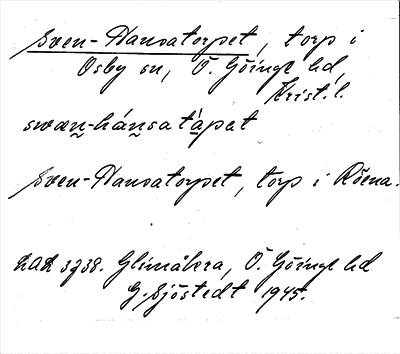 Sven-Hansatorpet, torp i
Osby sn, Ö. Göinge hd,
Krist. l.
swæn-hánsatàpet
Sven-Hansatorpet, torp i Röena.
LAL 3738. Glimåkra, Ö. Göinge hd
G. Sjöstedt 1945.